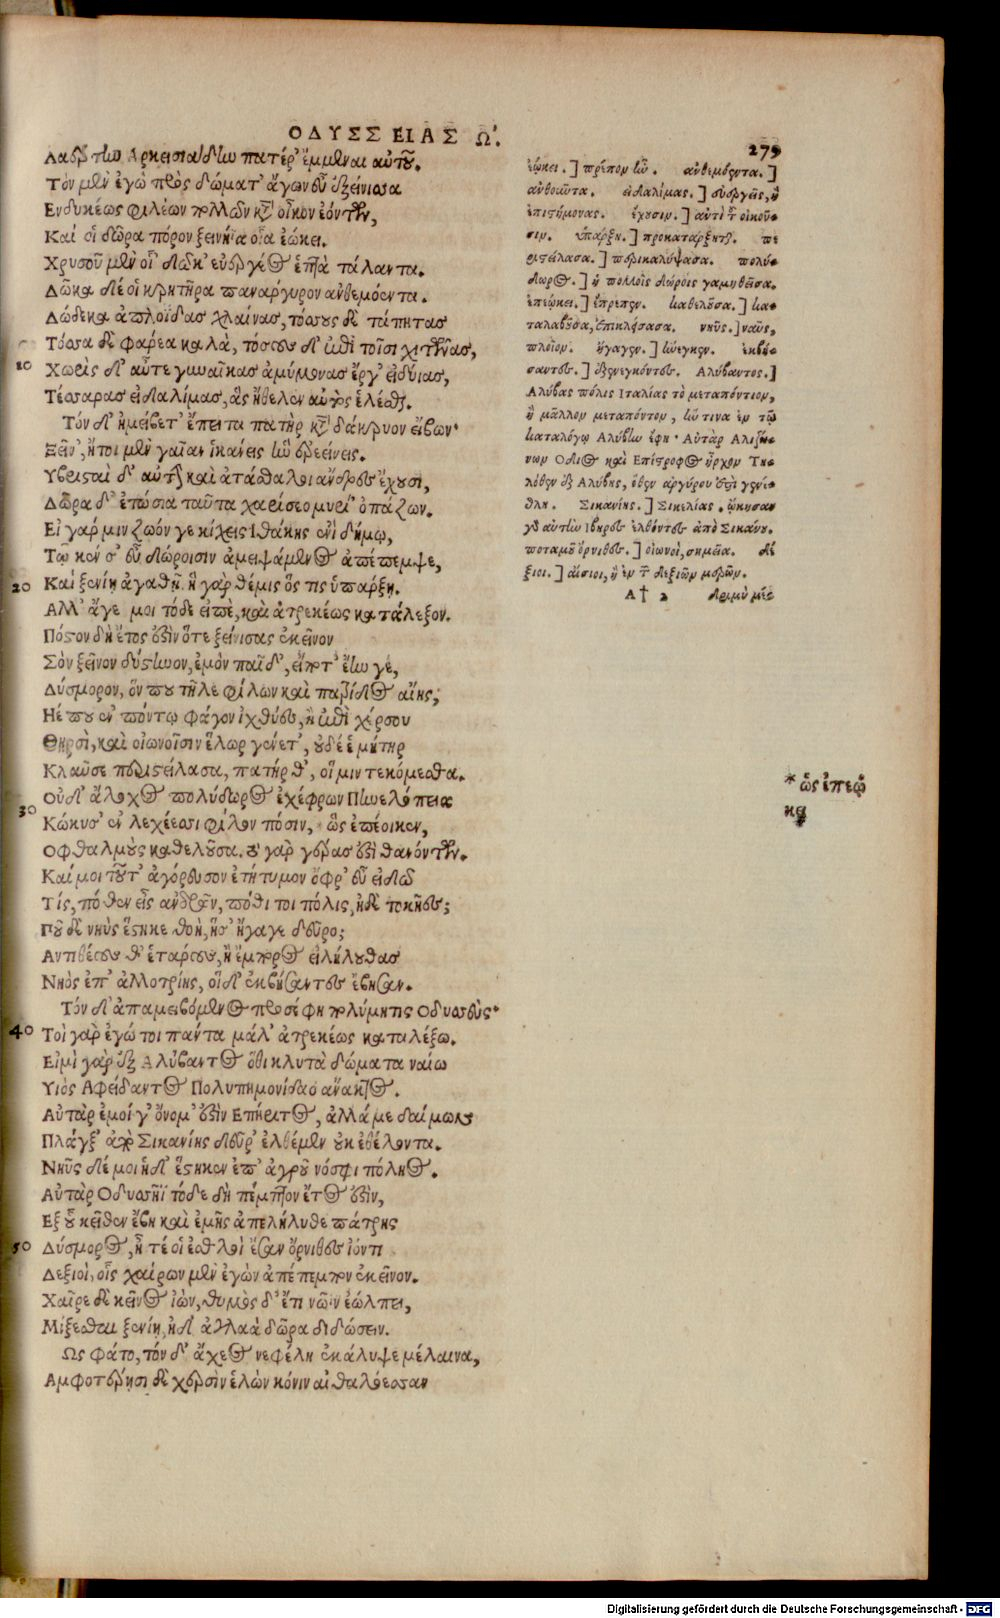 ΟΔΥΣΣΕΙΑΣ Ω.
279
Λαέρτην Αρκεισιάδην πατέρ' ἔμμεναι αὐτοῦ.
Τὸν μὲν ἐγὼ πρὸς δώματ' ἄγων εὖ ἐξείνισσα
Ενδυκέως φιλέων πολλῶν κατ' οἶκον ἐόντων,
Καί οἱ δῶρα πόρον ξεινήϊα οἷα ἐῴκει.
Χρυσοῦ μὲν οἷ δῶκ' εὐεργέος ἑπτὰ τάλαντα.
Δῶκα δέ οἱ κρητῆρα παναργυρον ἀνθεμόεντα.
Δώδεκα ἀπλοΐδας χλαίνας, τόσσους δὲ τάπητας
Τόσσα δὲ φάρεα καλὰ, τόσους δ' ἐπὶ τοῖσι χιτῶνας,
10 Χωρὶς δ' αὖτε γυναῖκας ἀμύμονας ἔργ' εἰδύιας,
Τέσσαρας εἰδαλίμας, ἃς ἤθελεν αὐτὸς ἑλέσθαι.
Τόν δ' ἠμείβετ' ἔπειτα πατὴρ κατὰ δάκρυον εἴβων·
Ξεῖν', ἤτοι μὲν γαῖαν ἱκάνεις ἣν ἐρεείνεις.
Υβρισταὶ δ' αὐτὴν καὶ ἀτάσθαλοι ἄνδρες ἔχουσι,
Δῶρα δ' ἐτώσια ταῦτα χαρίσσεο μυρί' ὀπάζων.
Εἰ γάρ μιν ζωόν γε κίχεις Ιθάκης ἐνὶ δήμῳ,
Τῷ κεν σ' εὖ δώροισιν ἀμειψάμενος ἀπέπεμψε,
20 Καὶ ξενίῃ ἀγαθῇ. ἣ γὰρ θέμις ὅς τις ὑπάρξῃ.
Αλλ' ἄγε μοι τόδε εἰπὲ, καὶ ἀτρεκέως κατάλεξον.
Πόστον δὴ ἔτος ἐστὶν ὅτε ξείνισας ἐκεῖνον
Σὸν ξεῖνον δύστηνον, ἐμὸν παῖδ', εἴποτ' ἔην γέ,
Δύσμορον, ὅν που τῆλε φίλων καὶ πατρίδος αἴης;
Ηέ που ἐν πόντῳ φάγον ἰχθύες, ἢ ἐπὶ χέρσου
Θηρσὶ, καὶ οἰωνοῖσιν ἕλωρ γένετ', οὐδέ ἑ μήτηρ
Κλαῦσε περιστείλασα, πατήρ θ', οἵ μιν τεκόμεσθα.
30 Οὐδ' ἄλοχος πολύδωρος ἐχέφρων Πηνελόπεια
Κώκυσ' ἐν λεχέεσσι φίλον πόσιν, ὡς ἐπέοικεν,
Οφθαλμοὺς καθελοῦσα. ὃ γὰρ γέρας ἐστὶ θανόντων.
Καί μοι τοῦτ' ἀγόρευσον ἐτήτυμον ὄφρ' εὖ εἰδῶ
Τίς, πόθεν εἶς ἀνδρῶν, πόθι τοι πόλις, ἠδὲ τοκῆες;
Ποῦ δὲ νηὺς ἕστηκε θοὴ, ἥσ' ἤγαγε δεῦρο;
Αντιθέους θ' ἑταίρους, ἢ ἔμπορος εἰλήλουθας
Νηὸς ἐπ' ἀλλοτρίης, οἱ δ' ἐκβήσαντες ἔβησαν.
Τόν δ' ἀπαμειβόμενος προσέφη πολύμητις Οδυσσεύς·
40 Τοὶ γὰρ ἐγώ τοι πάντα μάλ' ἀτρεκέως καταλέξω.
Εἰμὶ γὰρ ἐξ Αλύβαντος ὅθι κλυτὰ δώματα ναίω
Υιὸς Αφείδαντος Πολυπημονίδαο ἄνακτος.
Αὐτὰρ ἐμοί γ' ὄνομ' ἐστὶν Επήριτος, ἀλλά με δαίμων
Πλάγξ' ἀπὸ Σικανίης δεῦρ' ἐλθέμεν οὐκ ἐθέλοντα.
Νηῦς δέ μοι ἥδ' ἕστηκεν ἐπ' ἀγροῦ νόσφι πόληος.
Αὐτὰρ Οδυσσῆϊ τόδε δὴ πέμπτον ἔτος ἐστὶν,
Εξ οὗ κεῖθεν ἔβη καὶ ἐμῆς ἀπελήλυθε πάτρης
50 Δύσμορος, ἦ τέ οἱ ἐσθλοὶ ἔσαν ὄρνιθες ἰόντι
Δεξιοὶ, οἷς χαίρων μὲν ἐγὼν ἀπέπεμπον ἐκεῖνον.
Χαῖρε δὲ κεῖνος ἰὼν, θυμὸς δ' ἔτι νῶϊν ἐώλπει,
Μίξεσθαι ξενίῃ, ἠδ' ἀγλαὰ δῶρα διδώσειν.
Ως φάτο, τὸν δ' ἄχεος νεφέλη ἐκάλυψε μέλαινα,
Αμφοτέρῃσι δὲ χερσὶν ἑλὼν κόνιν αἰθαλόεσσαν
ἐῴκει.] πρέπον ἦν. ἀνθεμόεντα.]
ἀνθοῦντα. εἰδαλίμας.] συνεργεῖς, ἢ
ἐπιστήμονας. ἔχουσιν.] ἀντὶ τοῦ οἰκοῦ-
σιν. ὑπάρξῃ.] προκατάρξηται. πε
ριστείλασα.] περικαλύψασα. πολύ-
δωρος.] ἡ πολλοῖς δώροις γαμηθεῖσα.
ἐπεῴκει.] ἔπρεπεν. καθελοῦσα.] κα-
ταλαβοῦσα, ἐπικλείσασα. νηῦς.] ναῦς,
πλοῖον. ἤγαγεν.] ἤνεγκεν. ἐκβή-
σαντες.] ἐξενεγκόντες. Αλύβαντος.]
Αλύβας πόλις Ιταλίας τὸ μεταπόντιον,
ἢ μᾶλλον μεταπόντον, ἥν τινα ἐν τῷ
καταλόγῳ Αλύβην ἔφη· Αὐτὰρ Αλιζώ-
νων Οδίος καὶ Επίστροφος ἦρχον Τη-
λόθεν ἐξ Αλύβης, ὅθεν ἀργύρου ἐστὶ γενέ-
θλη. Σικανίης.] Σικελίας. ᾤκησαν
γὰρ αὐτὴν Ιβηρες ἐλθόντες ἀπὸ Σικάνου
ποταμοῦ ὄρνιθες.] οἰωνοί, σημεῖα. δε
ξιοι.] αἴσιοι, ἢ ἐν τῶν δεξιῶν μερῶν.
Α † 2 δριμὺ μέν
* ὡς ἐπεῴ
κει
Digitalisierung gefördert durch die Deutsche Forschungsgemeinschaft - DFG